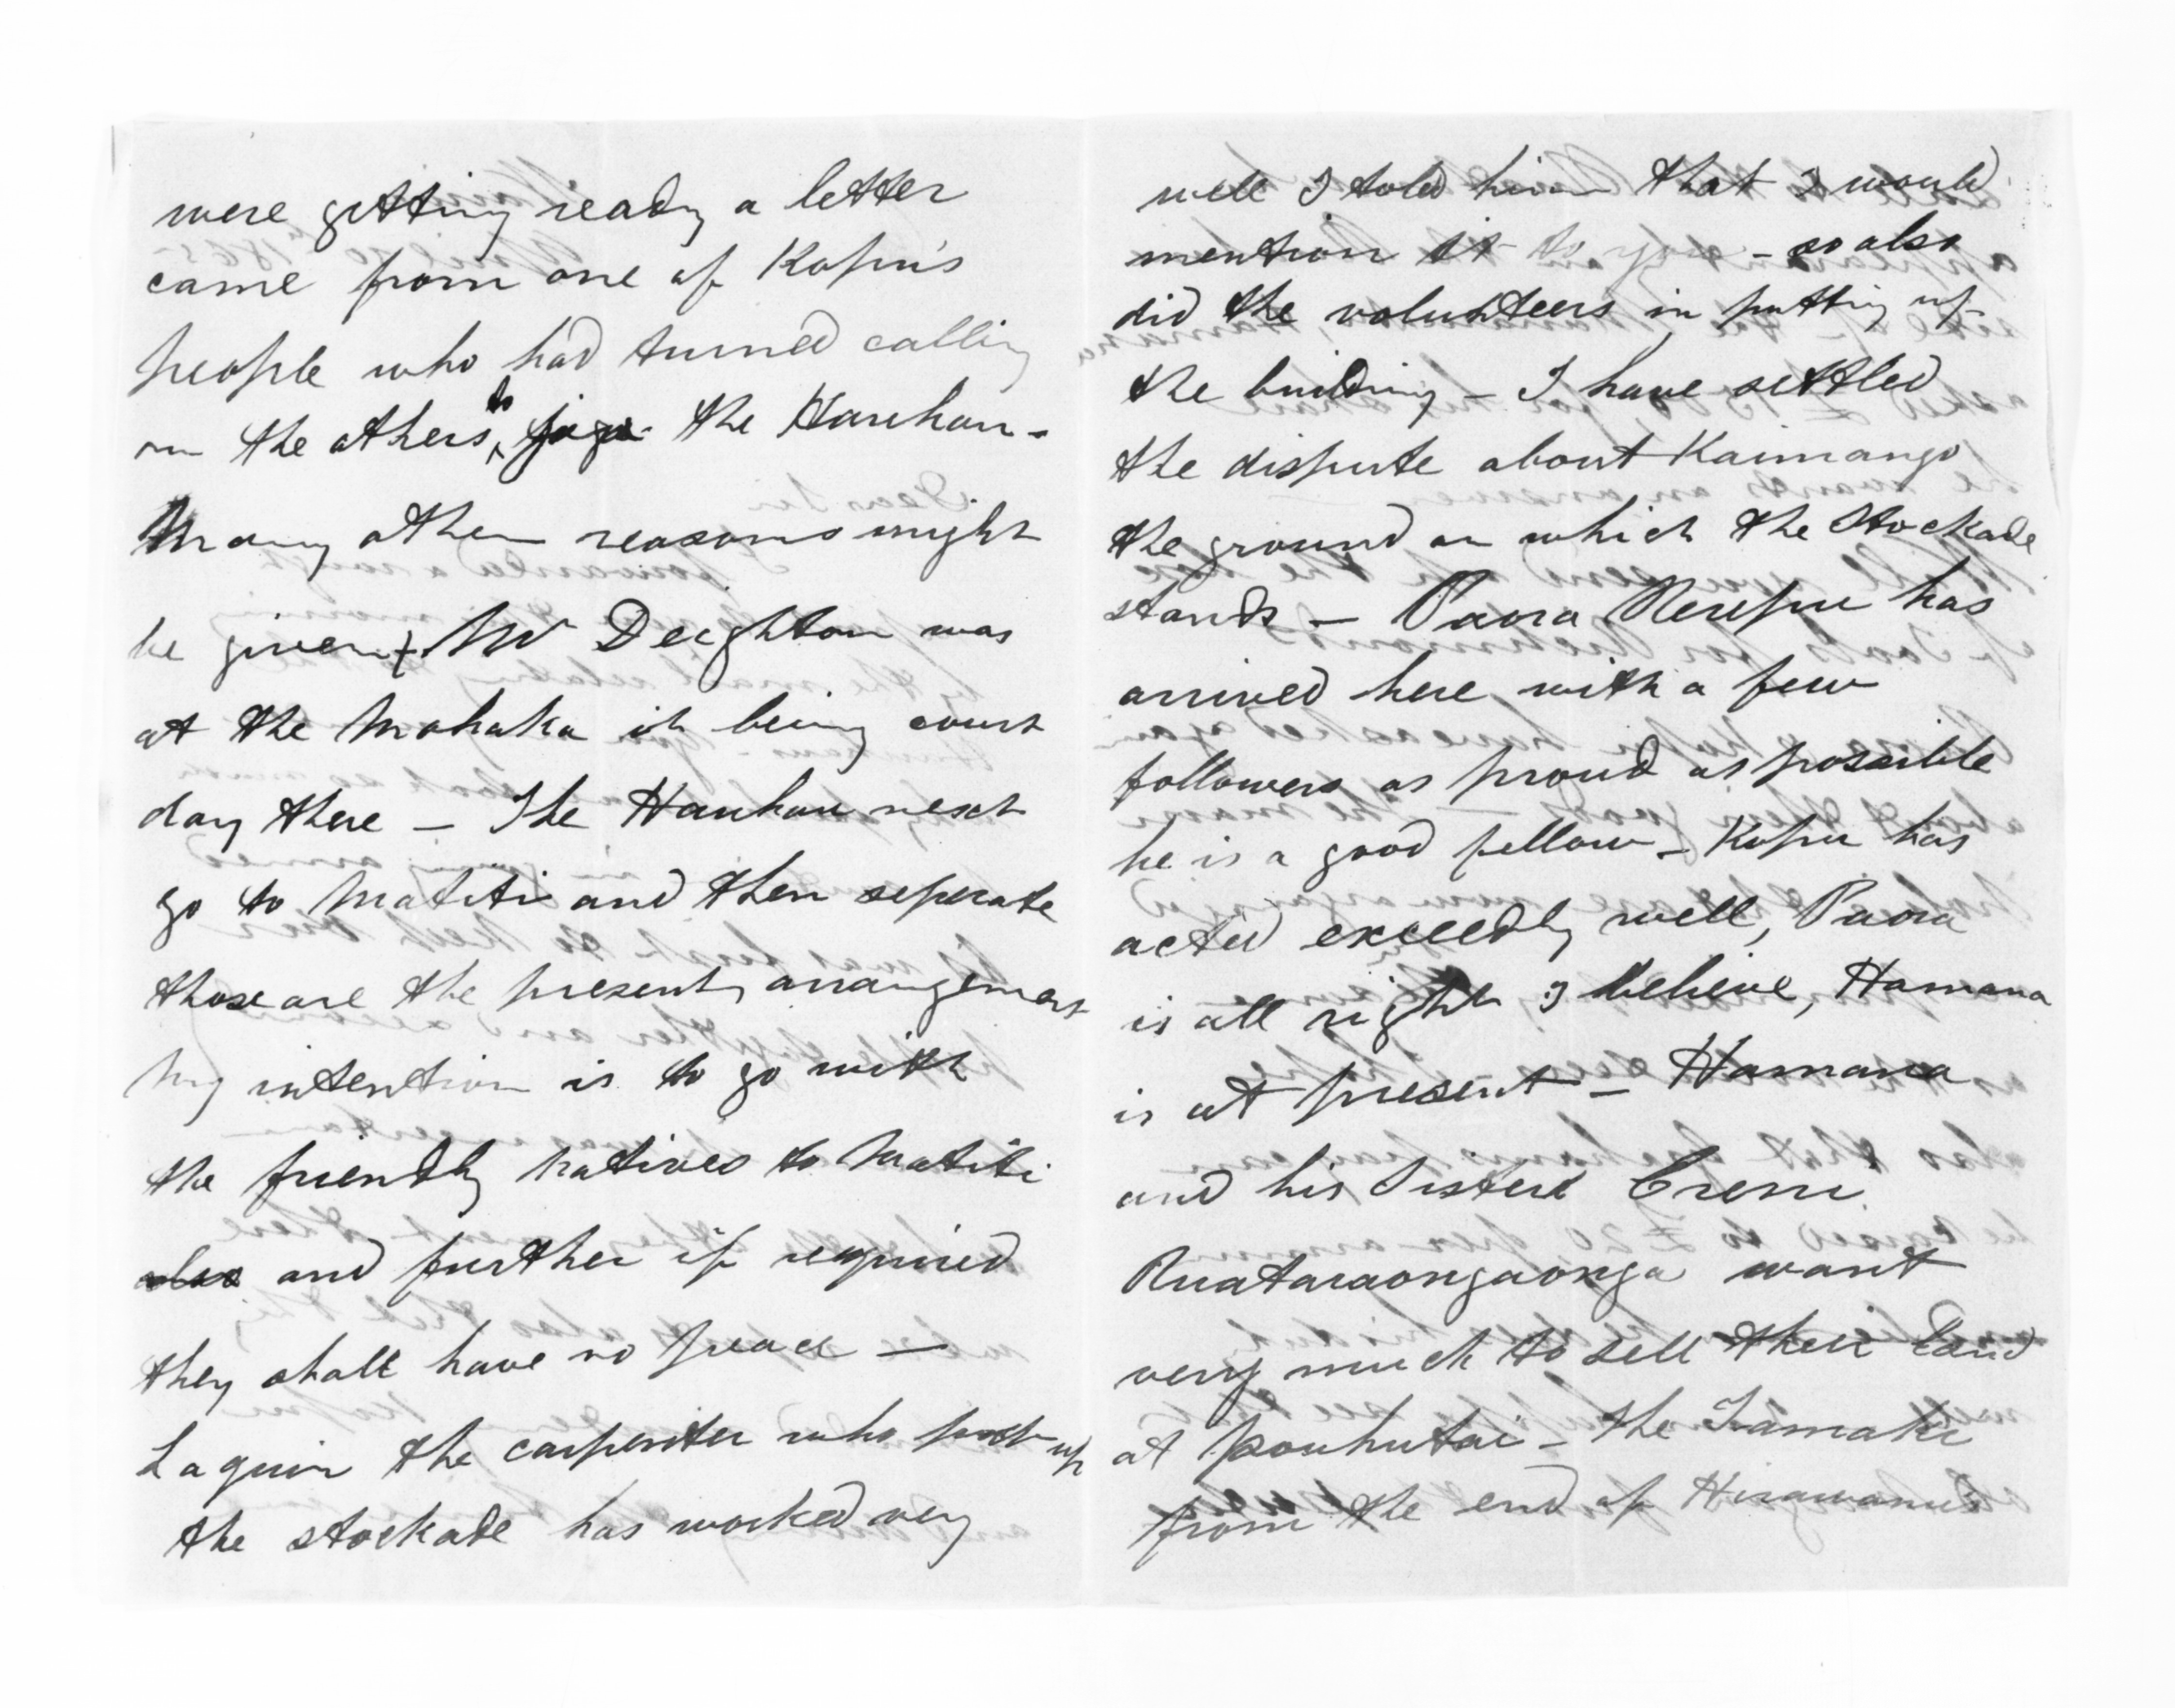 were getting ready a letter
came from one of Kopu's
people who had turned calling
on the others to join the Hauhau -
Many other reasons might
be given. Mr Deighton was
at the Mohaka it being court
day there — The Hauhau next
go to Matiti and then seperate
those are the present arrangement
My intention is to go with
the friendly natives to Matiti
also and further if required
they shall have no peace —
Laguin the carpenter who put up
the stockade has worked very
well I told him that I would
mention it to you - so also
did the volunteers in putting up
the building — I have settled
the dispute about Kaimango
the ground on which the Stockade
stands — Paora Rerepu has
arrived here with a few
followers as proud as possible
he is a good fellow - Kopu has
acted exceedly well, Paora
is all right I believe, Hamana
is at present — Hamana
and his Sister
Ruataraongaonga want
very much to sell their land
at Pouhutai - the Tamaki
from the end of